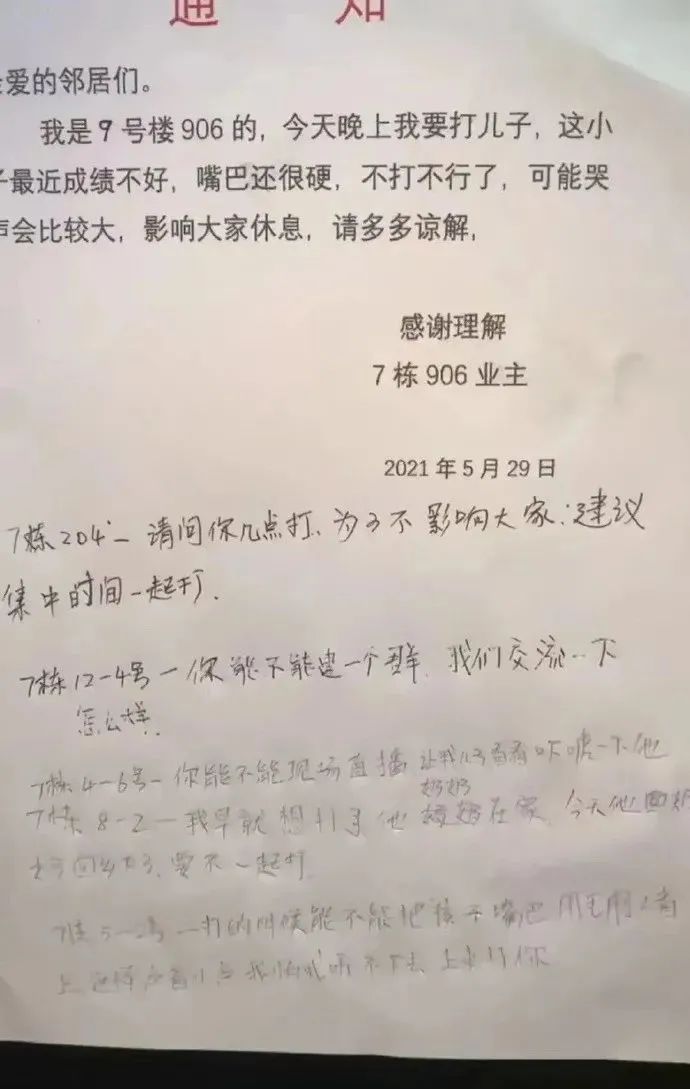 通 知
爱的邻居们。
我是9号楼906的，今天晚上我要打儿子，这小
子最近成绩不好，嘴巴还很硬，不打不行了，可能哭
声会比较大，影响大家休息，请多多谅解，
感谢理解
7栋906业主
2021年5月29日
7栋204一请问你几点打、为了不影响大家：建议
集中时间一起打.
7栋12-4号一你能不能建一个群.我们交流一下
怎么样.
7栋4-6号-你能不能现场直播 让我儿子看看吓唬一下他
奶奶
7栋8-2一我早就想打了他 奶在家.今天他
好回乡下了.要不一起打.
7栋 号一打的时候能不能把孩子嘴巴用毛巾
上 这样声音小点我怕我听不下去上来打你